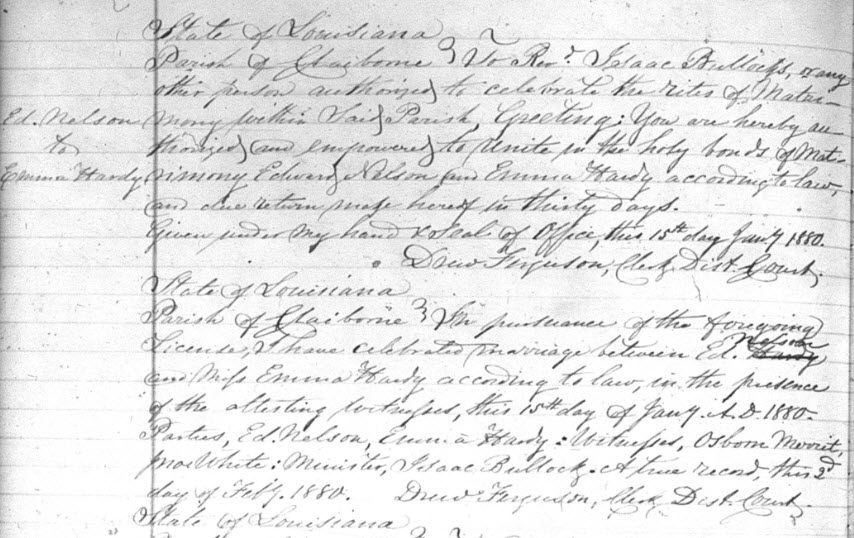 State of Louisiana
Parish of Claiborne } To Revd. Isaac Bullocks, or any
other person authorized to celebrate the rites of Matri-
Ed. Nelson
to
Emma Hardy
mony within Said Parish, Greeting: You are hereby au-
thorized and empowered to Unite in the holy bonds of Mat-
rimony Edward Nelson and Emma Hardy according to law,
and due return make hereof in thirty days.
Given under my hand & Seal of Office, this 15th day Jany 1880.
Drew Ferguson, Clerk Dist. Court.
State of Louisiana
Parish of Claiborne } In pursuance of the foregoing
License, I have celebrated marriage between Ed. Hardy Nelson
and Miss Emma Hardy according to law, in the presence
of the attesting witnesses, this 15th day of Jany. A.D. 1880.
Parties, Ed. Nelson, Emma Hardy: Witnesses, Osborn Merrit,
Jno. White: Minister, Isaac Bullock. A true record, this 2d
day of Feby. 1880. Drew Ferguson, Clerk Dist. Court.
State of Louisiana